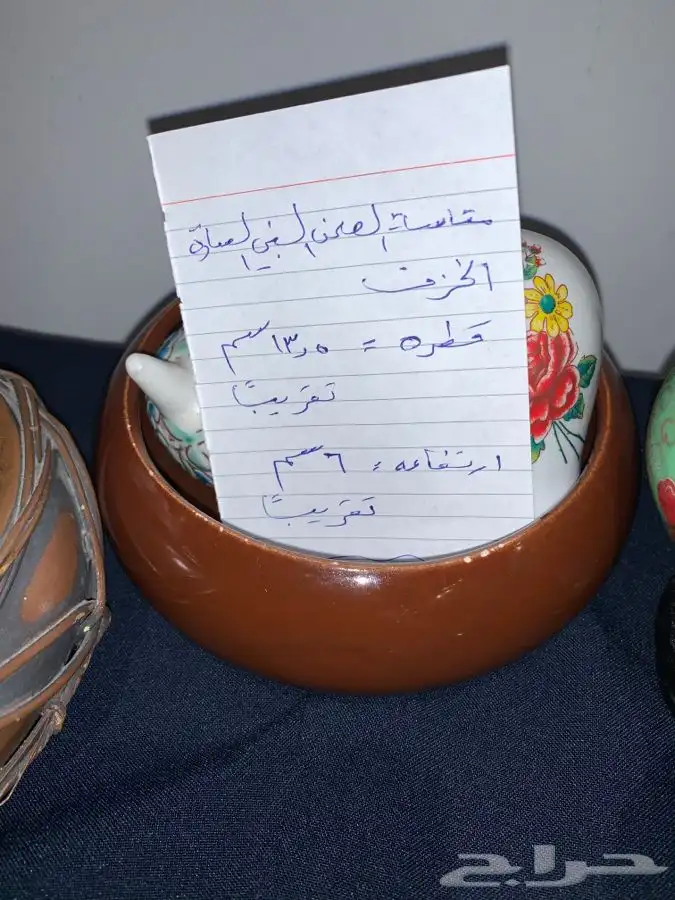 مقاسات الصحن البني السادة
الخزف
قطره = ١٣٫٥ سم
تقريبًا
ارتفاعه = ٦ سم
تقريبًا
حراج